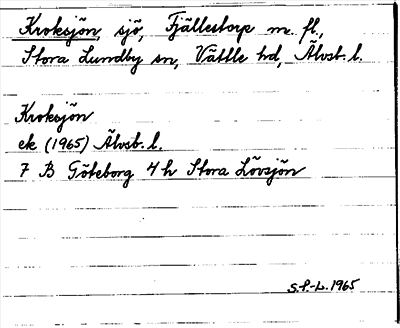 Kroksjön, sjö, Fjällestorp m. fl.,
Stora Lundby sn, Vättle hd, Älvsb. l.
Kroksjön
ek (1965) Älvsb. l.
7 B Göteborg 4 h Stora Lövsjön
S.P.-L. 1965